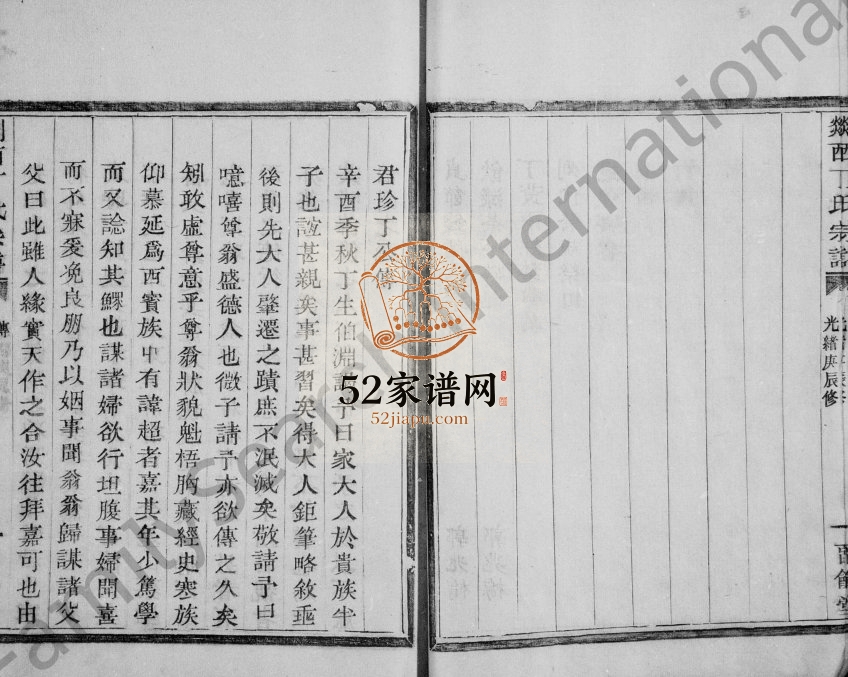 西丁氏宗譜
光緒庚辰修
君珍丁公傳
辛酉季秋丁生伯淵請予曰家大人於貴族半
子也誼甚親矣事甚習矣得大人鉅筆略敘垂
後則先大人肇遷之蹟庶不泯滅矣敬請予曰
噫嘻尊翁盛德人也微子請予亦欲傳之久矣
矧敢虛尊意乎尊翁狀貌魁梧胸藏經史寒族
仰慕延爲西賓族中有諱超者嘉其年少篤學
而又諗知其鰥也謀諸婦欲行坦腹事婦聞喜
而不寐爰浼良朋乃以姻事聞翁翁歸謀諸父
父曰此雖人緣實天作之合汝往拜嘉可也由
傳
52家谱网
52jiapu.com
FamilySearch International